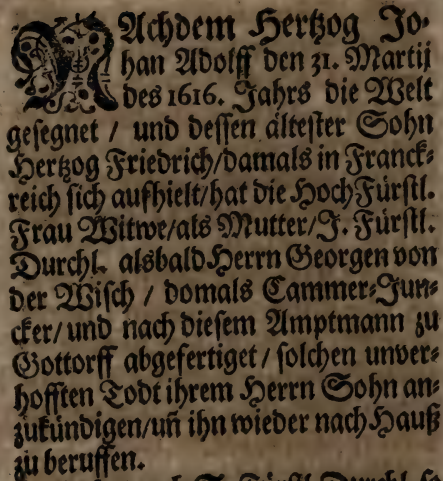 NAchdem Hertzog Jo⸗
han Adolff den 31. Martij
des 1616. Jahrs die Welt
gesegnet / und dessen ältester Sohn
Hertzog Friedrich/damals in Franck⸗
reich sich aufhielt/hat die HochFürstl.
Frau Witwe/als Mutter/J. Fürstl.
Durchl. alsbald Herrn Georgen von
der Wisch / domals Cammer⸗Jun⸗
cker/ und nach diesem Amptmann zu
Gottorff abgefertiget / solchen unver⸗
hofften Todt ihrem Herrn Sohn an⸗
zukündigen/uñ ihn wieder nach Hauß
zu beruffen.